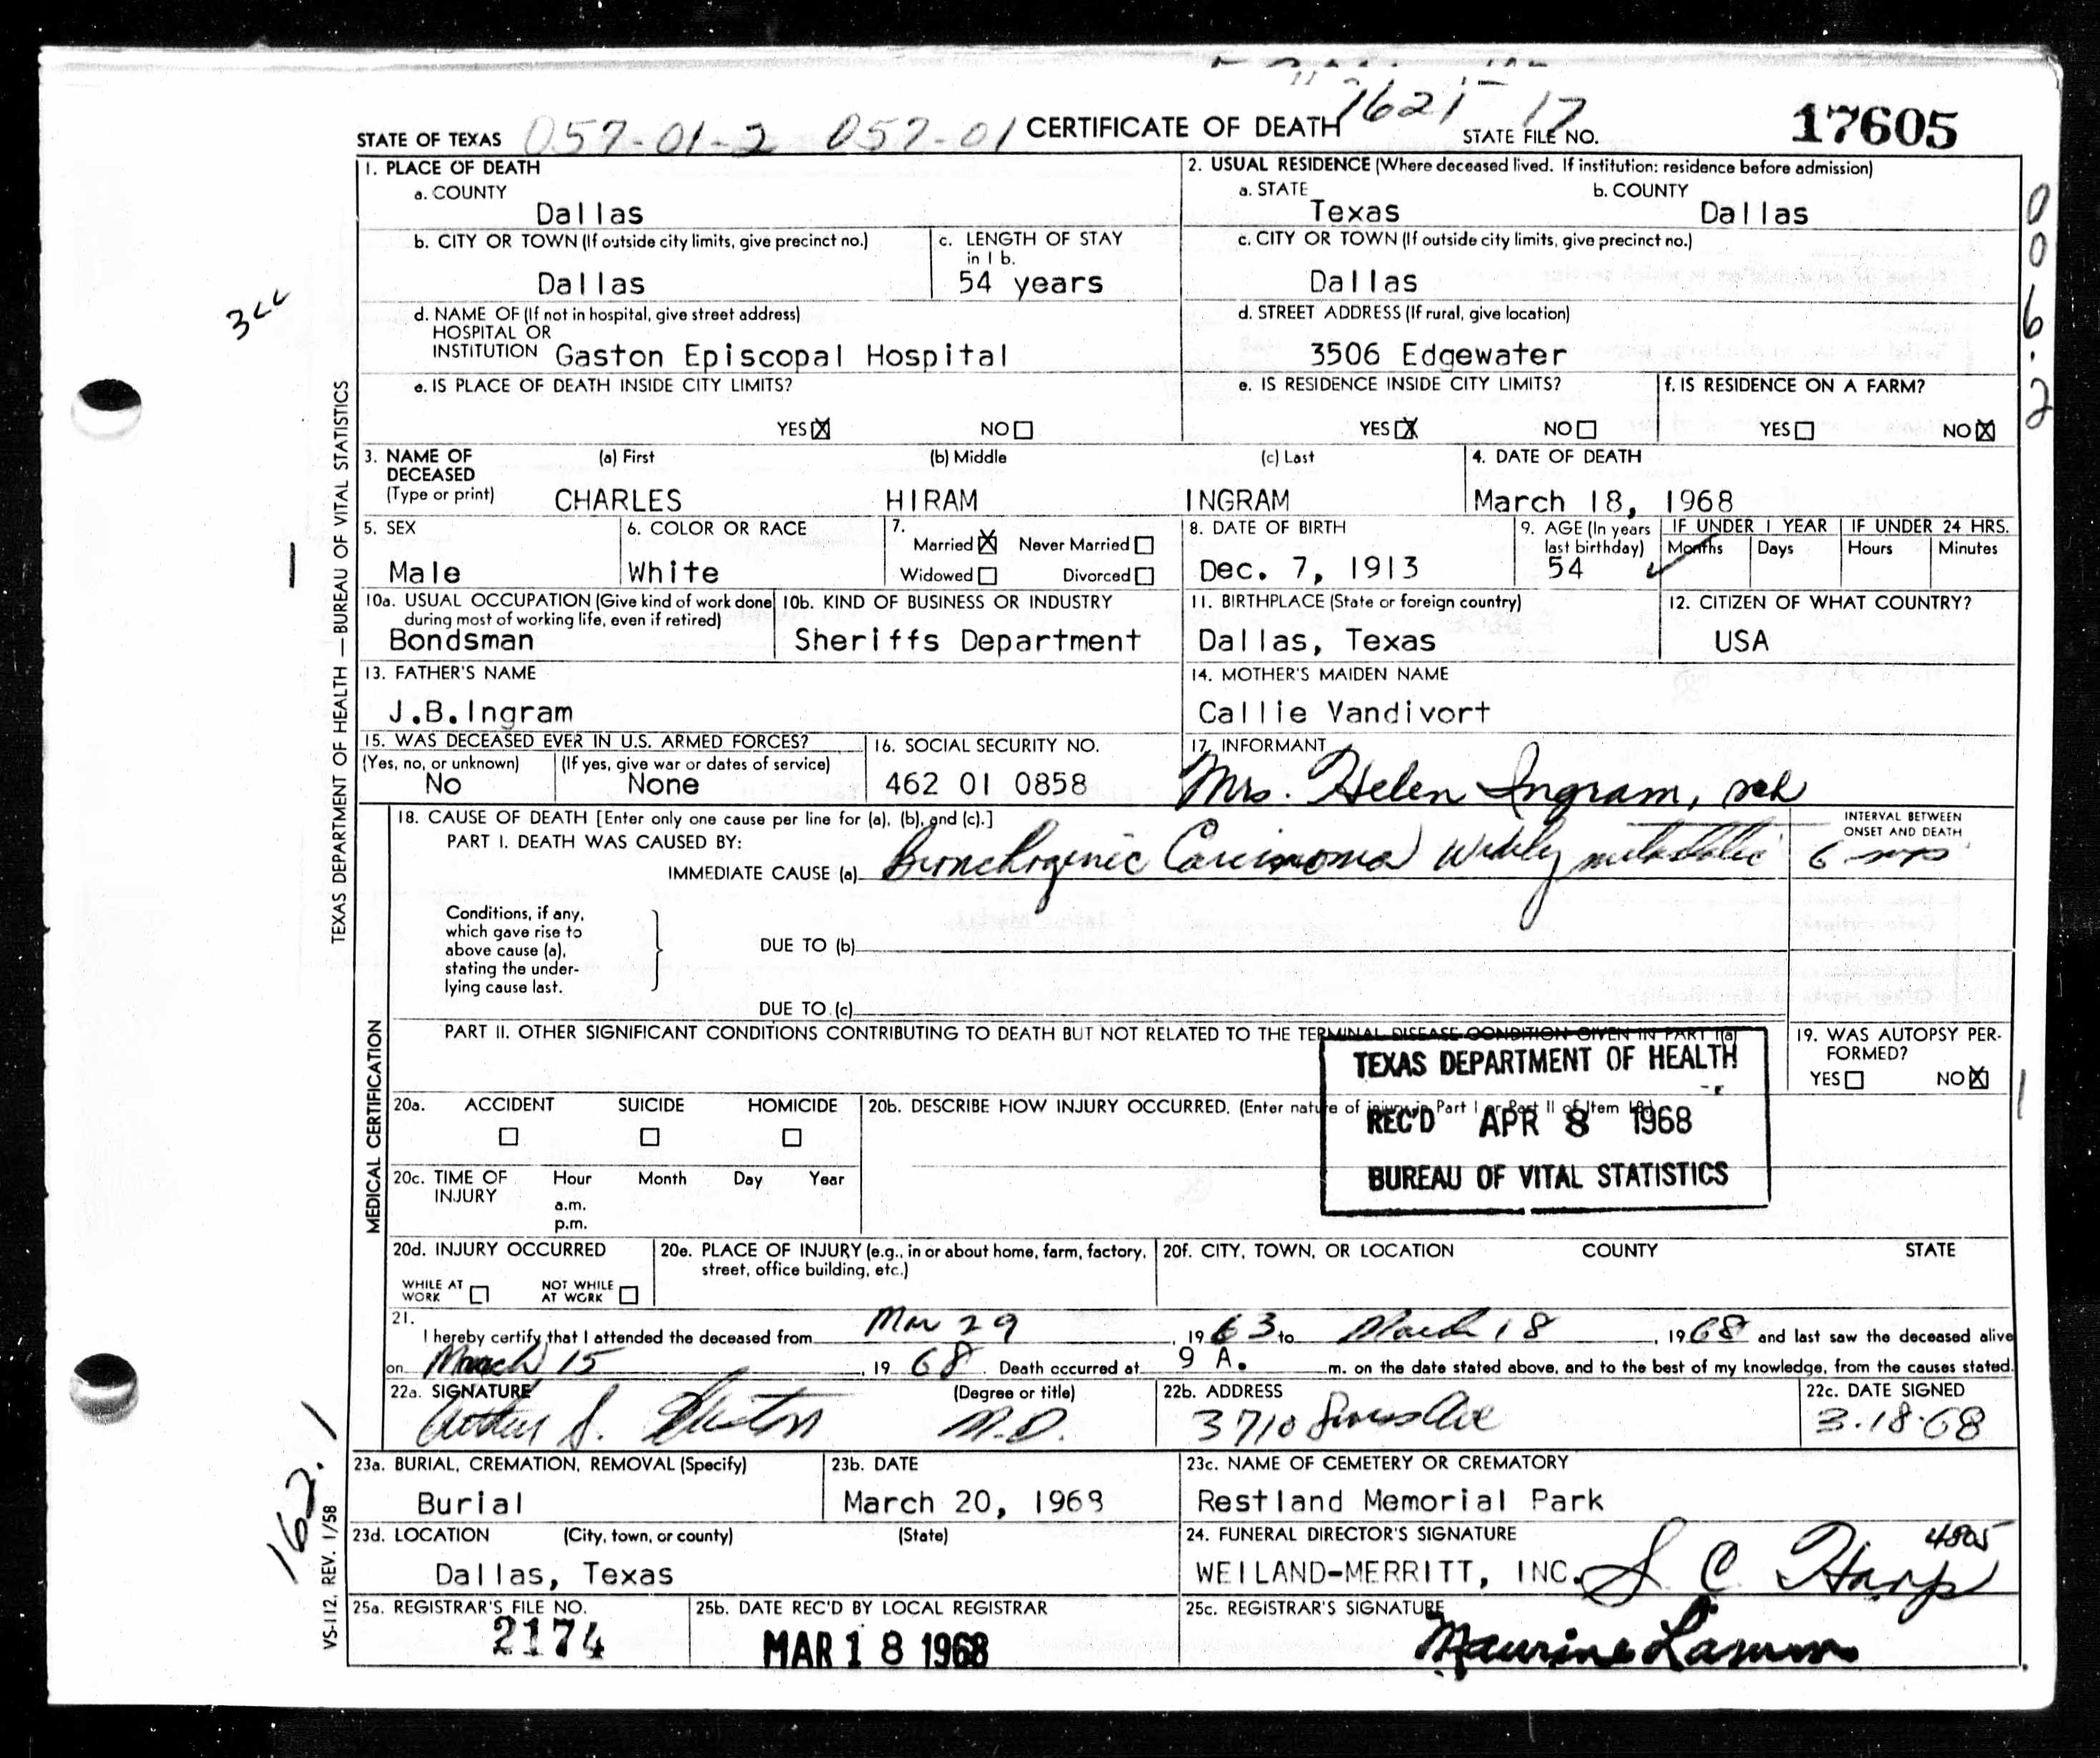 1621 17
STATE OF TEXAS 057-01-2 057-01 CERTIFICATE OF DEATH STATE FILE NO. 17605
1. PLACE OF DEATH
a. COUNTY
Dallas
2. USUAL RESIDENCE (Where deceased lived. If institution: residence before admission)
a. STATE b. COUNTY
Texas Dallas
b. CITY OR TOWN (If outside city limits, give precinct no.)
Dallas
c. LENGTH OF STAY
in 1 b.
54 years
c. CITY OR TOWN (If outside city limits, give precinct no.)
Dallas
d. NAME OF (If not in hospital, give street address)
HOSPITAL OR
INSTITUTION Gaston Episcopal Hospital
d. STREET ADDRESS (If rural, give location)
3506 Edgewater
e. IS PLACE OF DEATH INSIDE CITY LIMITS?
YES NO
e. IS RESIDENCE INSIDE CITY LIMITS?
YES NO
f. IS RESIDENCE ON A FARM?
YES NO
006.2
3cc
3. NAME OF
DECEASED
(Type or print)
(a) First (b) Middle (c) Last
CHARLES HIRAM INGRAM
4. DATE OF DEATH
March 18, 1968
5. SEX
Male
6. COLOR OR RACE
White
7.
Married Never Married
Widowed Divorced
8. DATE OF BIRTH
Dec. 7, 1913
9. AGE (In years
last birthday)
54
IF UNDER 1 YEAR
Months Days
IF UNDER 24 HRS.
Hours Minutes
10a. USUAL OCCUPATION (Give kind of work done
during most of working life, even if retired)
Bondsman
10b. KIND OF BUSINESS OR INDUSTRY
Sheriffs Department
11. BIRTHPLACE (State or foreign country)
Dallas, Texas
12. CITIZEN OF WHAT COUNTRY?
USA
13. FATHER'S NAME
J.B.Ingram
14. MOTHER'S MAIDEN NAME
Callie Vandivort
15. WAS DECEASED EVER IN U.S. ARMED FORCES?
(Yes, no, or unknown) (If yes, give war or dates of service)
No None
16. SOCIAL SECURITY NO.
462 01 0858
17. INFORMANT
Mrs. Helen Ingram,
TEXAS DEPARTMENT OF HEALTH — BUREAU OF VITAL STATISTICS
MEDICAL CERTIFICATION
18. CAUSE OF DEATH [Enter only one cause per line for (a), (b), and (c).]
PART I. DEATH WAS CAUSED BY:
IMMEDIATE CAUSE (a) Bronchogenic Carcinoma widely metastatic
INTERVAL BETWEEN
ONSET AND DEATH
6 mos
Conditions, if any,
which gave rise to
above cause (a),
stating the under-
lying cause last.
DUE TO (b)
DUE TO (c)
PART II. OTHER SIGNIFICANT CONDITIONS CONTRIBUTING TO DEATH BUT NOT RELATED TO THE TERMINAL DISEASE CONDITION GIVEN IN PART I(a)
19. WAS AUTOPSY PER-
FORMED?
YES NO
TEXAS DEPARTMENT OF HEALTH
REC'D APR 8 1968
BUREAU OF VITAL STATISTICS
20a. ACCIDENT SUICIDE HOMICIDE
20b. DESCRIBE HOW INJURY OCCURRED. (Enter nature of injury in Part I or Part II of Item 18.)
20c. TIME OF
INJURY
Hour Month Day Year
a.m.
p.m.
20d. INJURY OCCURRED
WHILE AT
WORK
NOT WHILE
AT WORK
20e. PLACE OF INJURY (e.g., in or about home, farm, factory,
street, office building, etc.)
20f. CITY, TOWN, OR LOCATION COUNTY STATE
21.
I hereby certify that I attended the deceased from Mar 29, 1963 to March 18, 1968 and last saw the deceased alive
on March 15, 1968. Death occurred at 9 A. m. on the date stated above, and to the best of my knowledge, from the causes stated.
22a. SIGNATURE (Degree or title)
M.D.
22b. ADDRESS
3710 Swiss Ave
22c. DATE SIGNED
3-18-68
162.1
VS-112, REV. 1/58
23a. BURIAL, CREMATION, REMOVAL (Specify)
Burial
23b. DATE
March 20, 1968
23c. NAME OF CEMETERY OR CREMATORY
Restland Memorial Park
23d. LOCATION (City, town, or county) (State)
Dallas, Texas
24. FUNERAL DIRECTOR'S SIGNATURE
4805
WEILAND-MERRITT, INC. S. C. Harp
25a. REGISTRAR'S FILE NO.
2174
25b. DATE REC'D BY LOCAL REGISTRAR
MAR 18 1968
25c. REGISTRAR'S SIGNATURE
Maurine